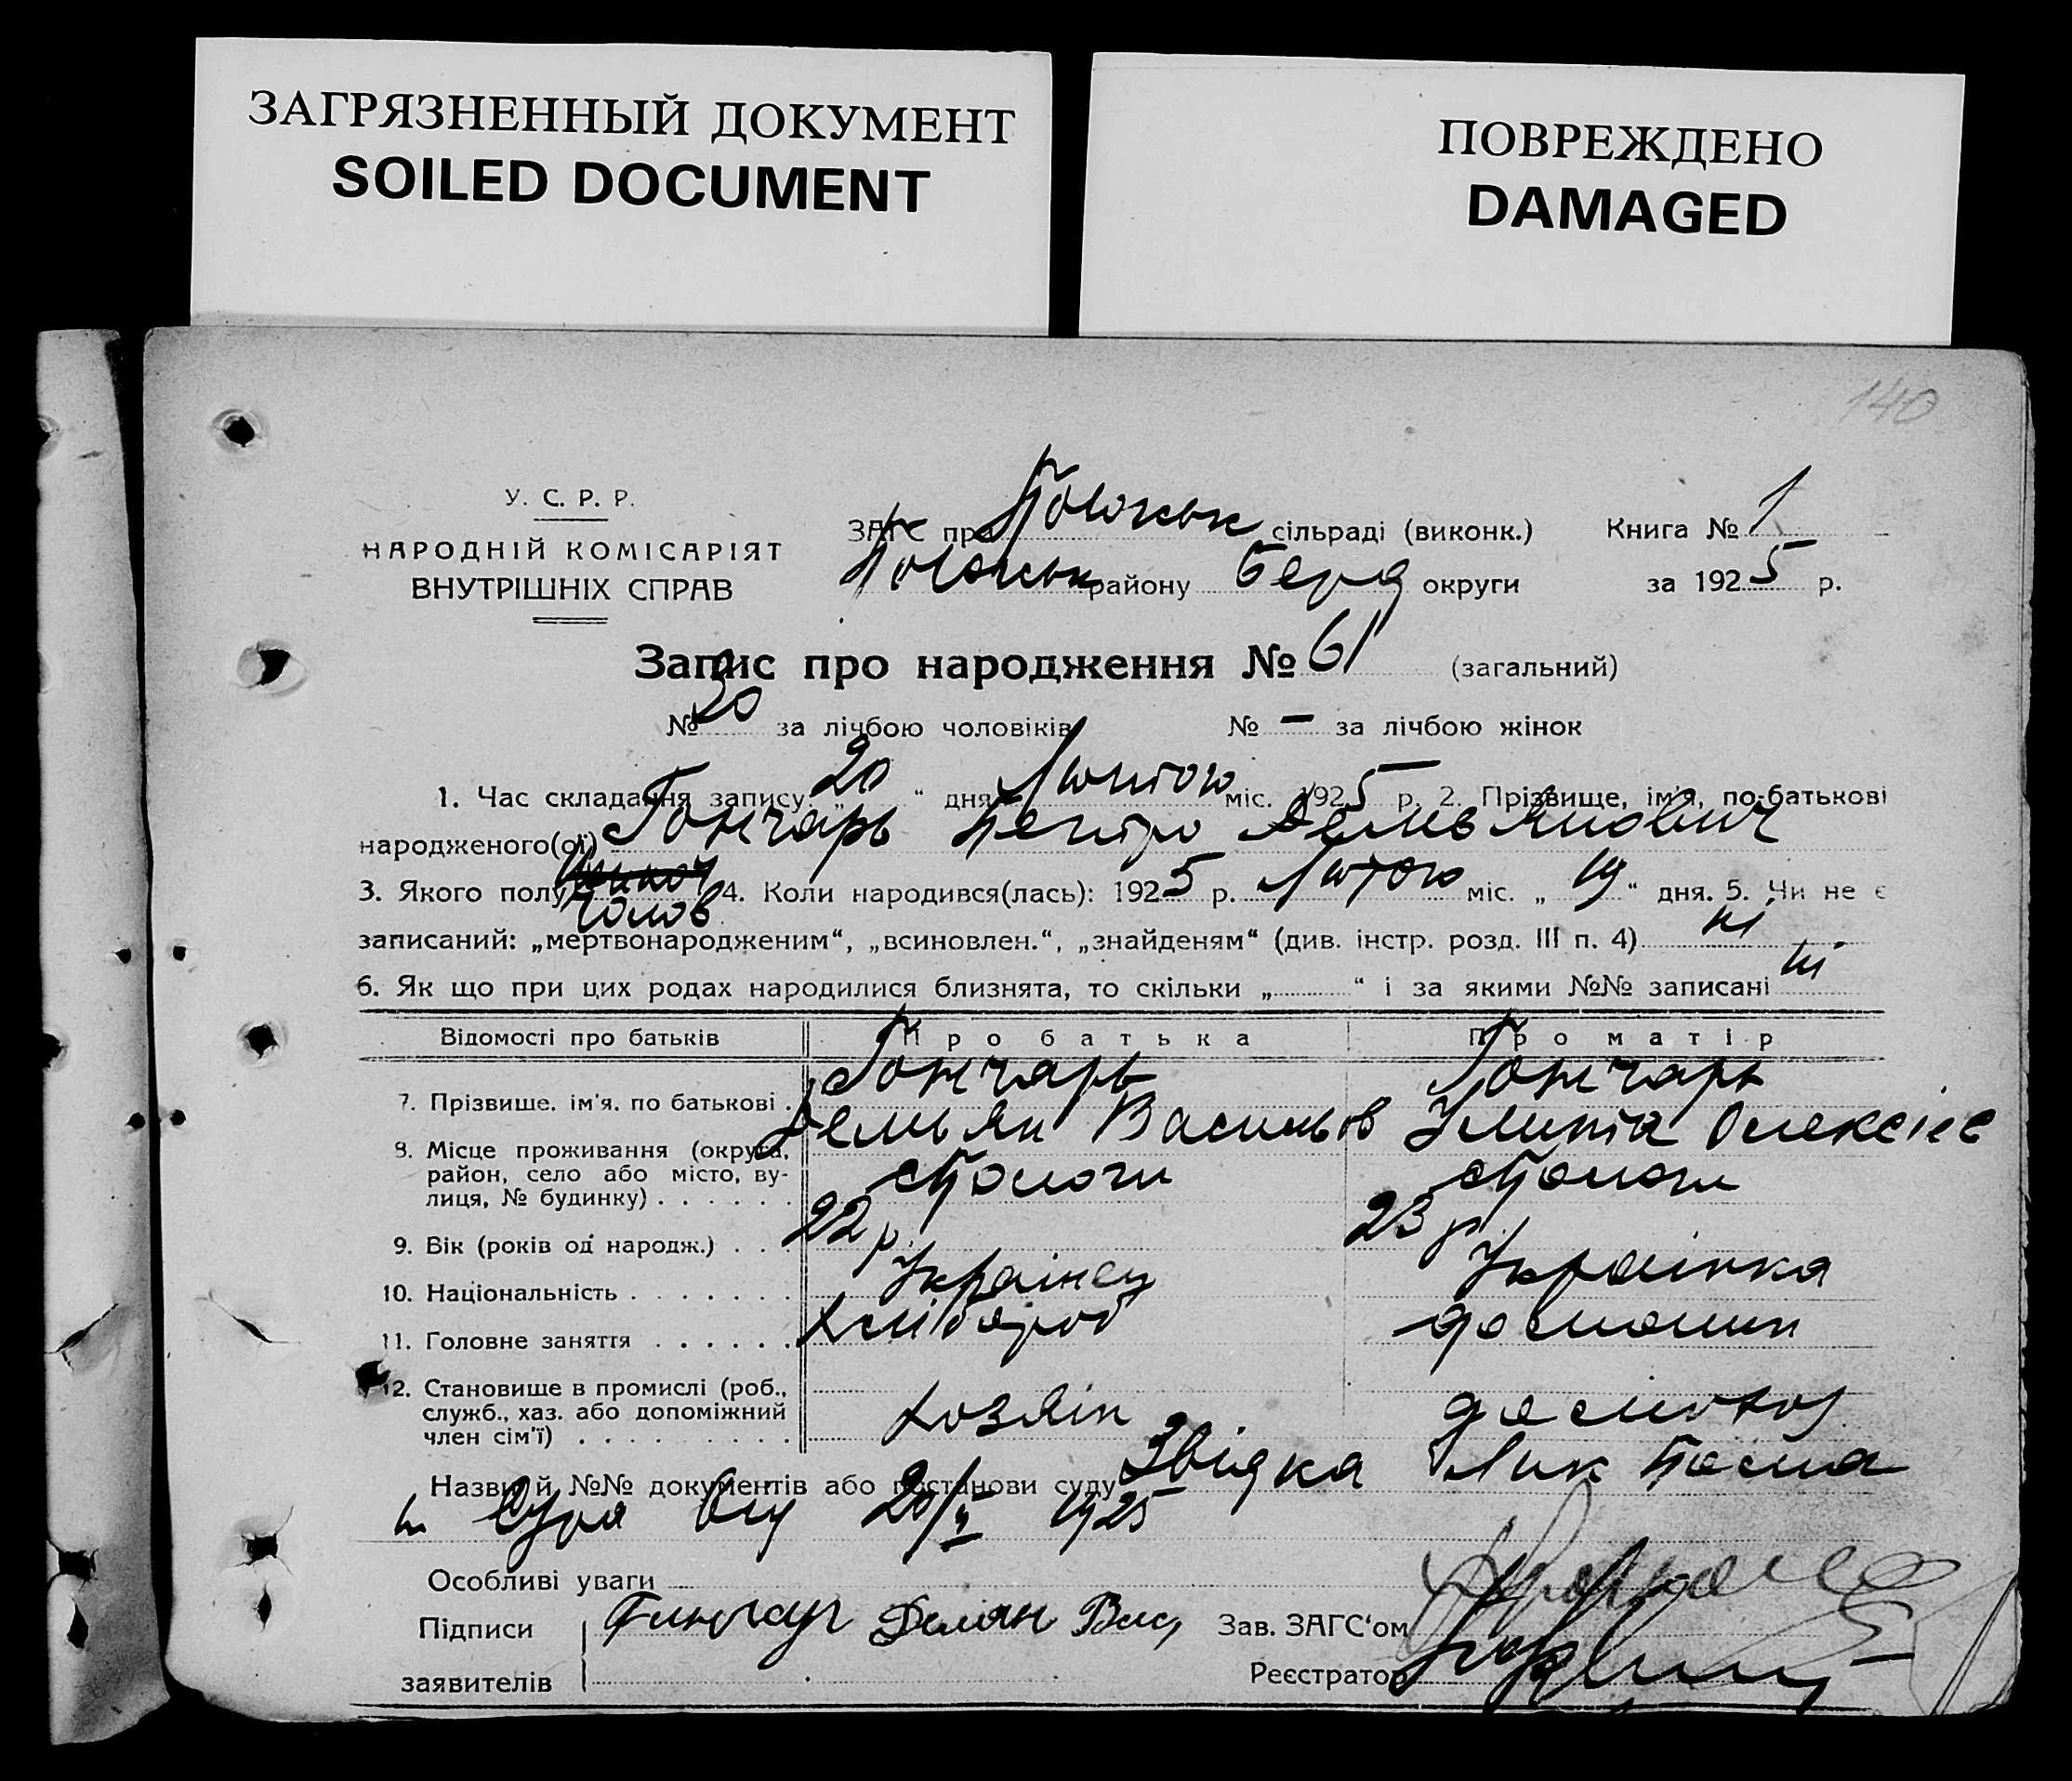 ЗАГРЯЗНЕННЫЙ ДОКУМЕНТ
SOILED DOCUMENT
ПОВРЕЖДЕНО
DAMAGED
140
У. С. Р. Р.
НАРОДНІЙ КОМІСАРІЯТ
ВНУТРІШНІХ СПРАВ
ЗАГС при Пологськ сільраді (виконк.)
Пологськ району Берд округи
Книга № 1
за 1925 р.
Запис про народження № 61 (загальний)
№ 30 за лічбою чоловіків № — за лічбою жінок
1. Час складання запису: „20“ дня Лютого міс. 1925 р. 2. Прізвище, ім'я, по-батькові
народженого(ої) Гончарь Петро Демьянович
3. Якого полу Чолов 4. Коли народився(лась): 1925 р. Лютого міс. „19“ дня. 5. Чи не є
записаний: „мертвонародженим“, „всиновлен.“, „знайденям“ (див. інстр. розд. III п. 4) ні
6. Як що при цих родах народилися близнята, то скільки „ “ і за якими №№ записані ні
Відомості про батьків Про батька Про матір
7. Прізвище, ім'я, по батькові . Гончарь Демьян Васильов Гончарь Улита Олексіів
8. Місце проживання (округа, район, село або місто, вулиця, № будинку) . . . . . . с Пологи с Пологи
9. Вік (років од народж.) . . . 22 р. 23 р.
10. Національність . . . . . . . Українец Українка
11. Головне заняття . . . . . . Хлібороб домашн
12. Становище в промислі (роб., служб., хаз. або допоміжний член сім'ї) . . . . . . . . . хозяін
Назви й №№ документів або постанови суду Звідка
20/II 1925
Особливі уваги
Підписи Гончар Демян Вас Зав. ЗАГС'ом
заявителів Реєстратор